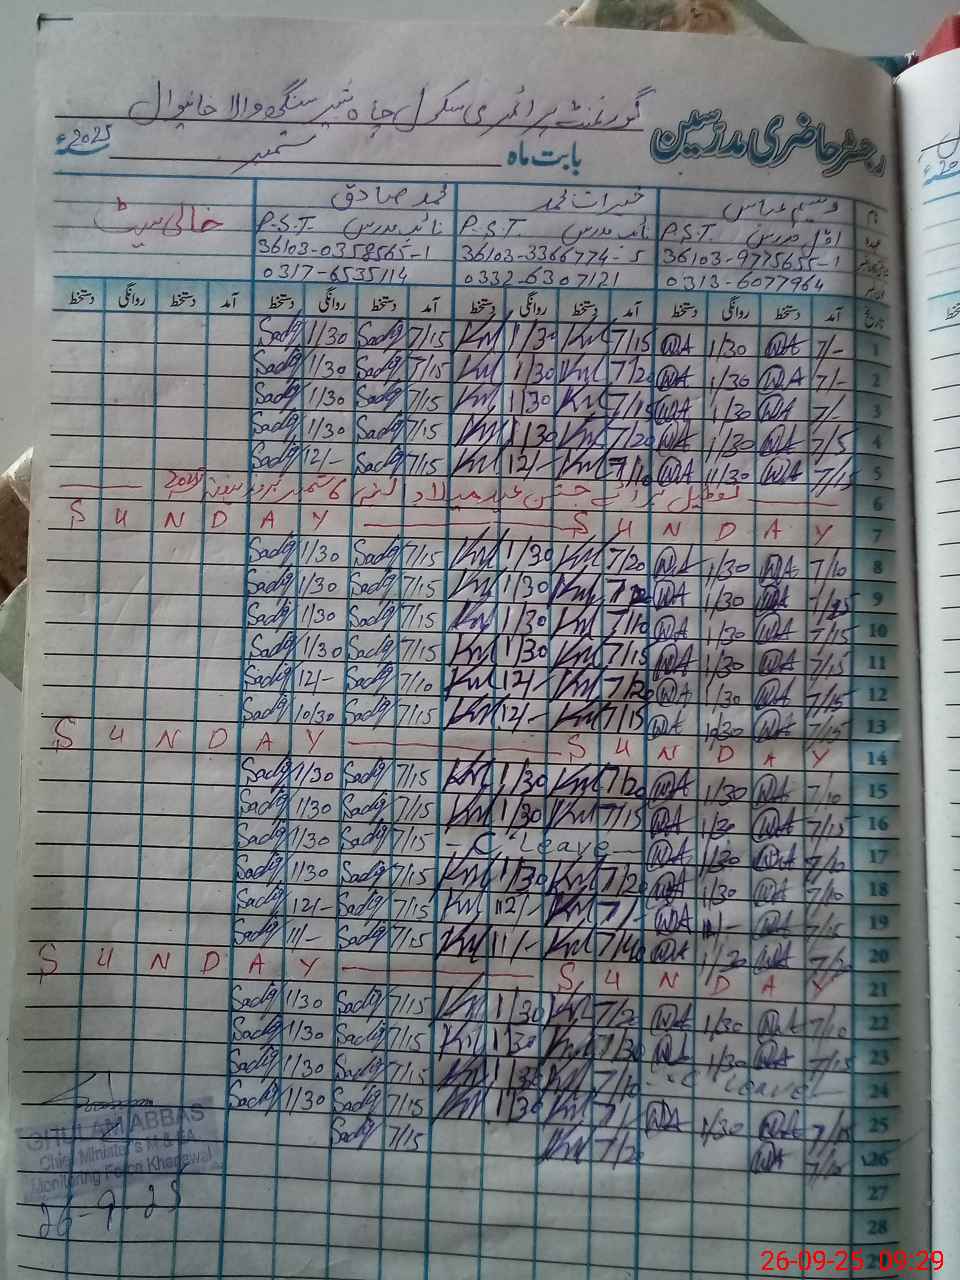 رجسٹر حاضری مدرسین گورنمنٹ پرائمری سکول چاہ شیر سنگی والا خانیوال
بابت ماہ ستمبر 2025ء
نام وسیم عباس خیرات محمد محمد صادق خالی سیٹ
عہدہ P.S.T. P.S.T. نائب مدرس P.S.T. نائب مدرس
36103-9775655-1 36103-3366774-5 36103-0358565-1
0313-6077964 0332-6307121 0317-6535114
تاریخ آمد دستخط روانگی دستخط آمد دستخط روانگی دستخط آمد دستخط روانگی دستخط آمد دستخط روانگی دستخط
1 7/- WA 1/30 WA 7/15 KM 1/30 KM 7/15 Sadiq 1/30 Sadiq
2 7/- WA 1/30 WA 7/20 KM 1/30 KM 7/15 Sadiq 1/30 Sadiq
3 7/- WA 1/30 WA 7/15 KM 1/30 KM 7/15 Sadiq 1/30 Sadiq
4 7/5 WA 1/30 WA 7/20 KM 1/30 KM 7/15 Sadiq 1/30 Sadiq
5 7/15 WA 1/30 WA 7/10 KM 12/- KM 7/15 Sadiq 12/- Sadiq
6 تعطیل برائے جشن عید میلاد النبی 6 ستمبر بروز 2025
7 SUNDAY SUNDAY
8 7/10 WA 1/30 WA 7/20 KM 1/30 KM 7/15 Sadiq 1/30 Sadiq
9 WA 1/30 WA KM 1/30 KM 7/15 Sadiq 1/30 Sadiq
10 7/15 WA 1/30 WA 7/10 KM 1/30 KM 7/15 Sadiq 1/30 Sadiq
11 7/15 WA 1/30 WA 7/15 KM 1/30 KM 7/15 Sadiq 1/30 Sadiq
12 7/15 WA 1/30 WA 7/20 KM 12/- KM 7/10 Sadiq 12/- Sadiq
13 7/15 WA WA 7/15 KM 12/- KM 7/15 Sadiq 10/30 Sadiq
14 SUNDAY SUNDAY
15 7/10 WA 1/30 WA 7/20 KM 1/30 KM 7/15 Sadiq 1/30 Sadiq
16 7/15 WA 1/30 WA 7/15 KM 1/30 KM 7/15 Sadiq 1/30 Sadiq
17 7/10 WA 1/30 WA C. Leave 7/15 Sadiq 1/30 Sadiq
18 7/10 WA 1/30 WA 7/20 KM 1/30 KM 7/15 Sadiq 1/30 Sadiq
19 7/15 WA WA 7/- KM 12/- KM 7/15 Sadiq 12/- Sadiq
20 7/20 WA WA KM 11/- KM 7/15 Sadiq 11/- Sadiq
21 SUNDAY SUNDAY
22 7/10 WA 1/30 WA 7/20 KM 1/30 KM 7/15 Sadiq 1/30 Sadiq
23 7/15 WA 1/30 WA KM 1/30 KM 7/15 Sadiq 1/30 Sadiq
24 C Leave 7/10 KM 1/30 KM 7/15 Sadiq 1/30 Sadiq
25 7/15 WA 1/30 WA KM 1/30 KM 7/15 Sadiq 1/30 Sadiq
26 7/10 WA 7/20 KM 7/15 Sadiq
27
28
29
GHULAM ABBAS
Chief Minister's M & EA
Monitoring Force Khanewal
26-9-25
26-09-25 09:29